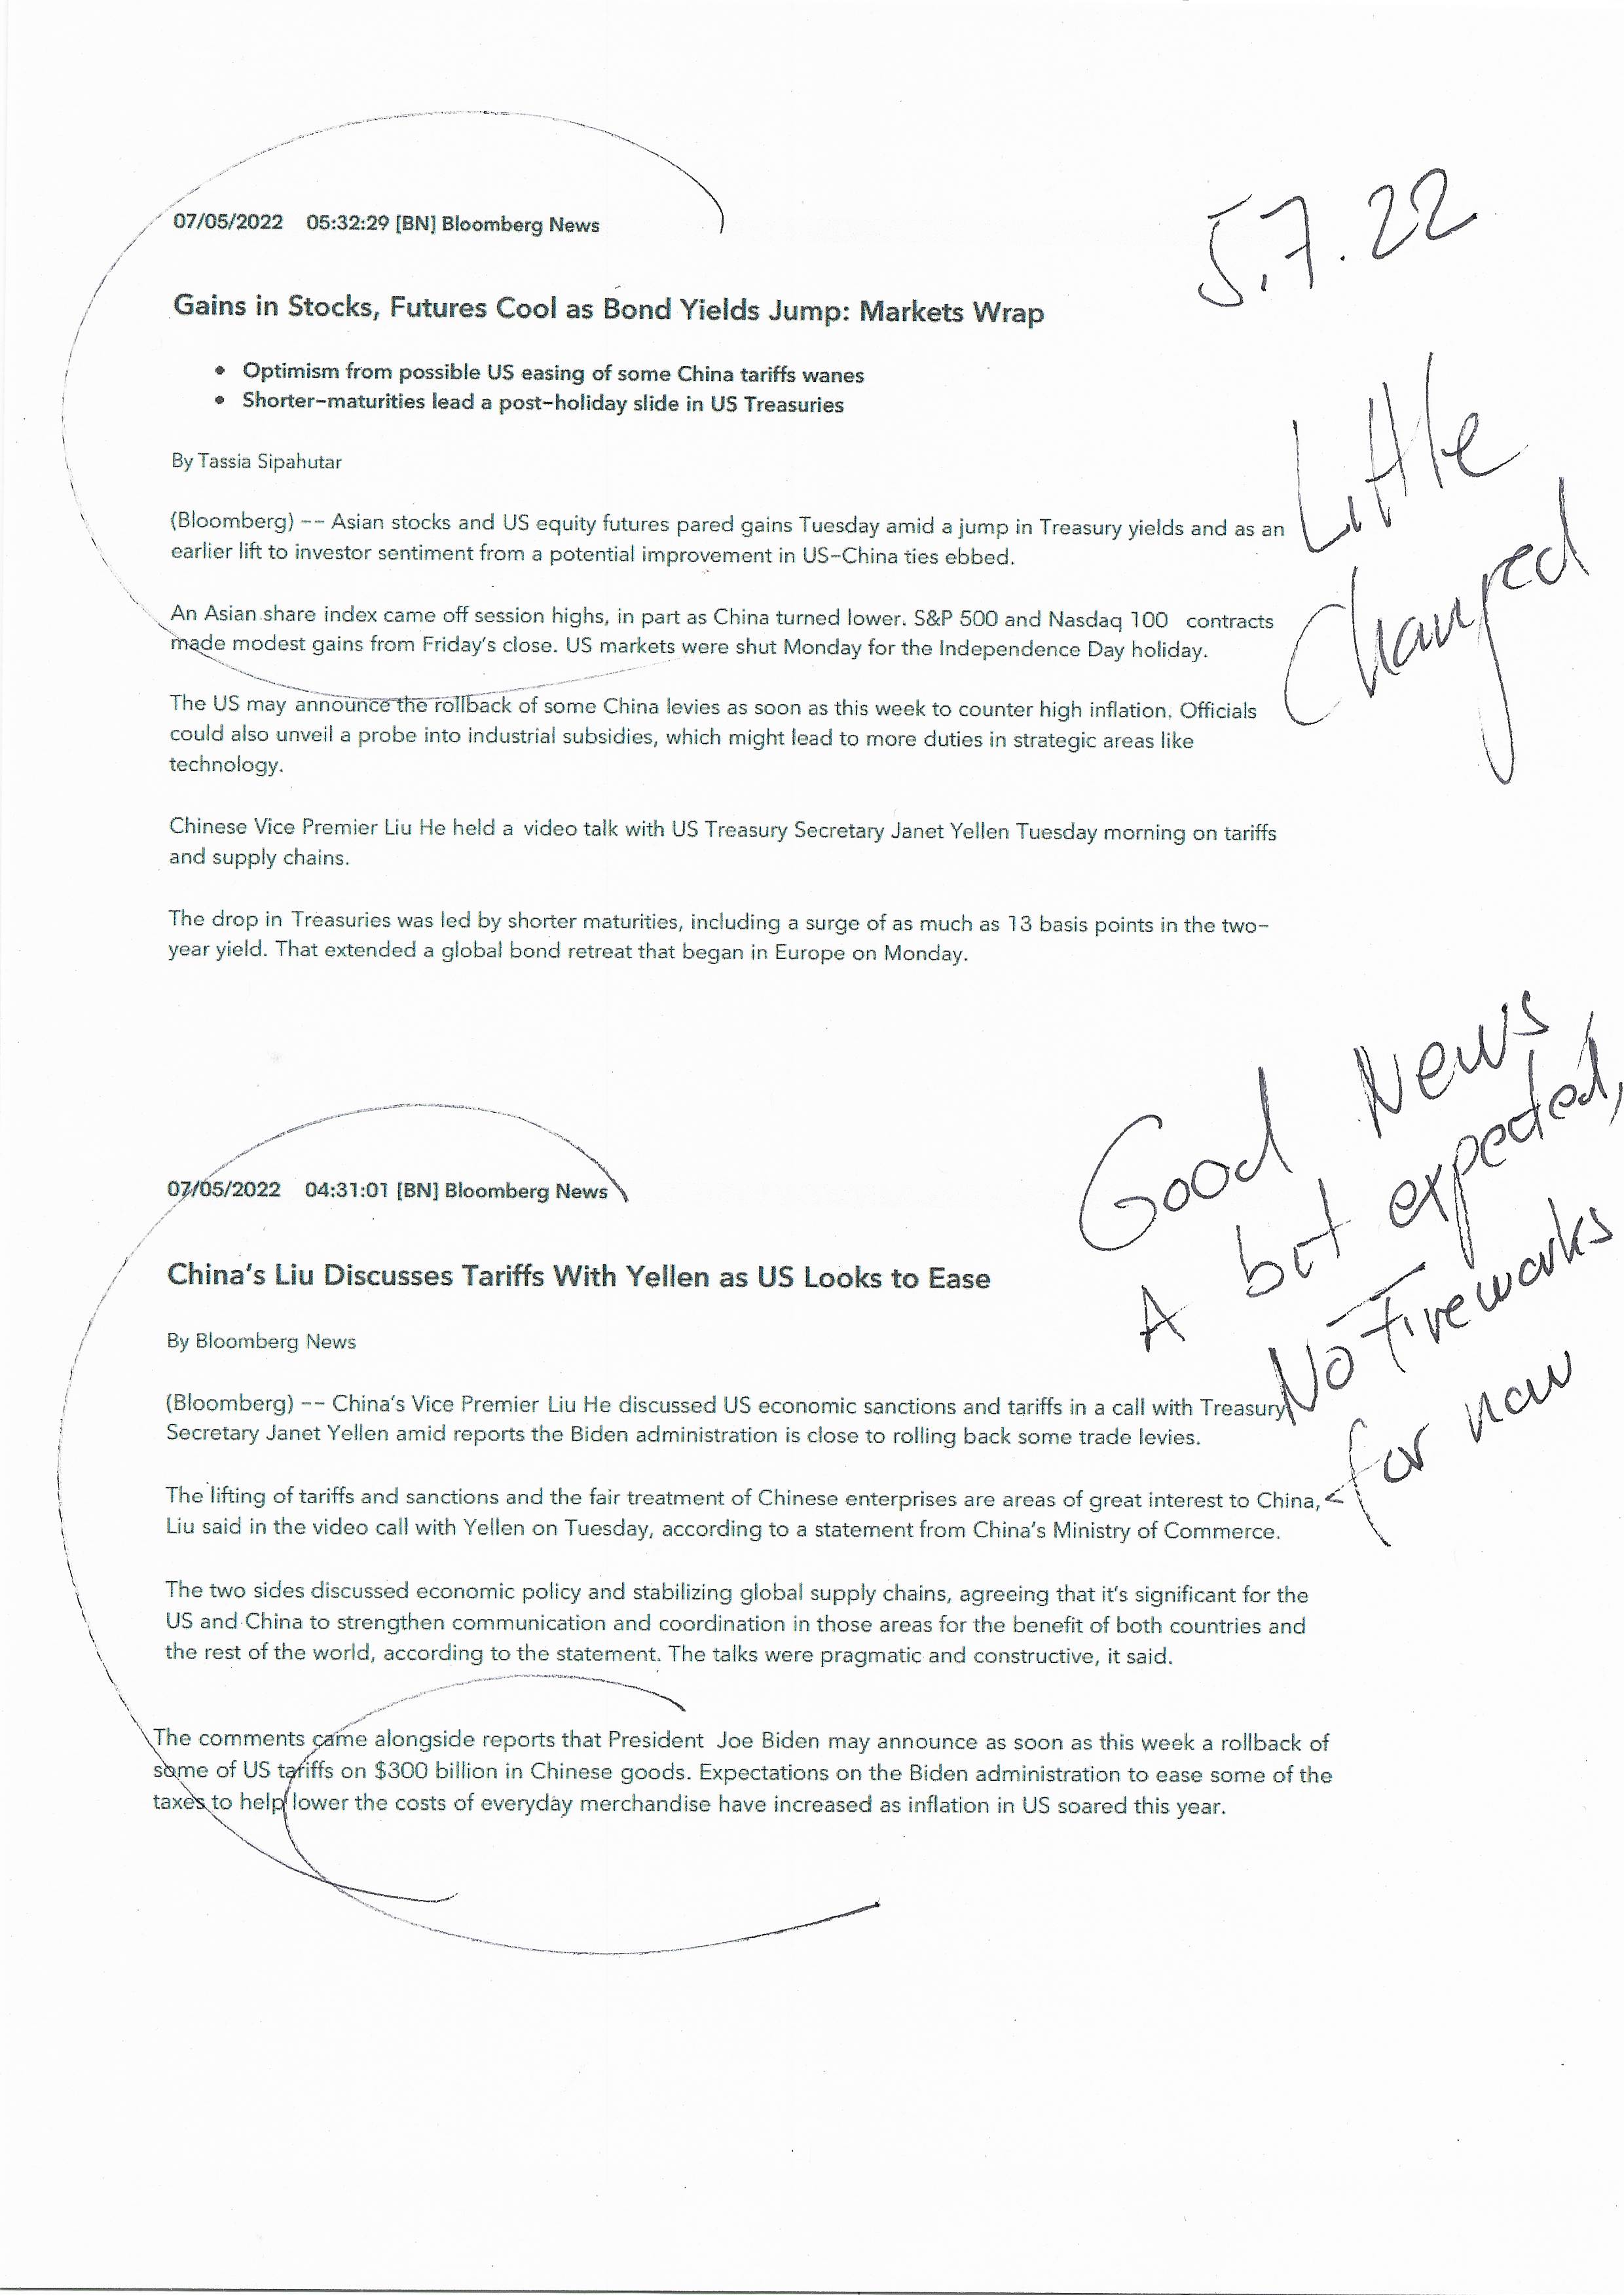 07/05/2022 05:32:29 [BN] Bloomberg News
5.7.22
Gains in Stocks, Futures Cool as Bond Yields Jump: Markets Wrap
• Optimism from possible US easing of some China tariffs wanes
• Shorter-maturities lead a post-holiday slide in US Treasuries
Little
Changed
By Tassia Sipahutar
(Bloomberg) -- Asian stocks and US equity futures pared gains Tuesday amid a jump in Treasury yields and as an
earlier lift to investor sentiment from a potential improvement in US-China ties ebbed.
An Asian share index came off session highs, in part as China turned lower. S&P 500 and Nasdaq 100 contracts
made modest gains from Friday's close. US markets were shut Monday for the Independence Day holiday.
The US may announce the rollback of some China levies as soon as this week to counter high inflation. Officials
could also unveil a probe into industrial subsidies, which might lead to more duties in strategic areas like
technology.
Chinese Vice Premier Liu He held a video talk with US Treasury Secretary Janet Yellen Tuesday morning on tariffs
and supply chains.
The drop in Treasuries was led by shorter maturities, including a surge of as much as 13 basis points in the two-
year yield. That extended a global bond retreat that began in Europe on Monday.
Good News
A bit expected,
No Fireworks
for now
07/05/2022 04:31:01 [BN] Bloomberg News
China's Liu Discusses Tariffs With Yellen as US Looks to Ease
By Bloomberg News
(Bloomberg) -- China's Vice Premier Liu He discussed US economic sanctions and tariffs in a call with Treasury
Secretary Janet Yellen amid reports the Biden administration is close to rolling back some trade levies.
The lifting of tariffs and sanctions and the fair treatment of Chinese enterprises are areas of great interest to China,
Liu said in the video call with Yellen on Tuesday, according to a statement from China's Ministry of Commerce.
The two sides discussed economic policy and stabilizing global supply chains, agreeing that it's significant for the
US and China to strengthen communication and coordination in those areas for the benefit of both countries and
the rest of the world, according to the statement. The talks were pragmatic and constructive, it said.
The comments came alongside reports that President Joe Biden may announce as soon as this week a rollback of
some of US tariffs on $300 billion in Chinese goods. Expectations on the Biden administration to ease some of the
taxes to help lower the costs of everyday merchandise have increased as inflation in US soared this year.